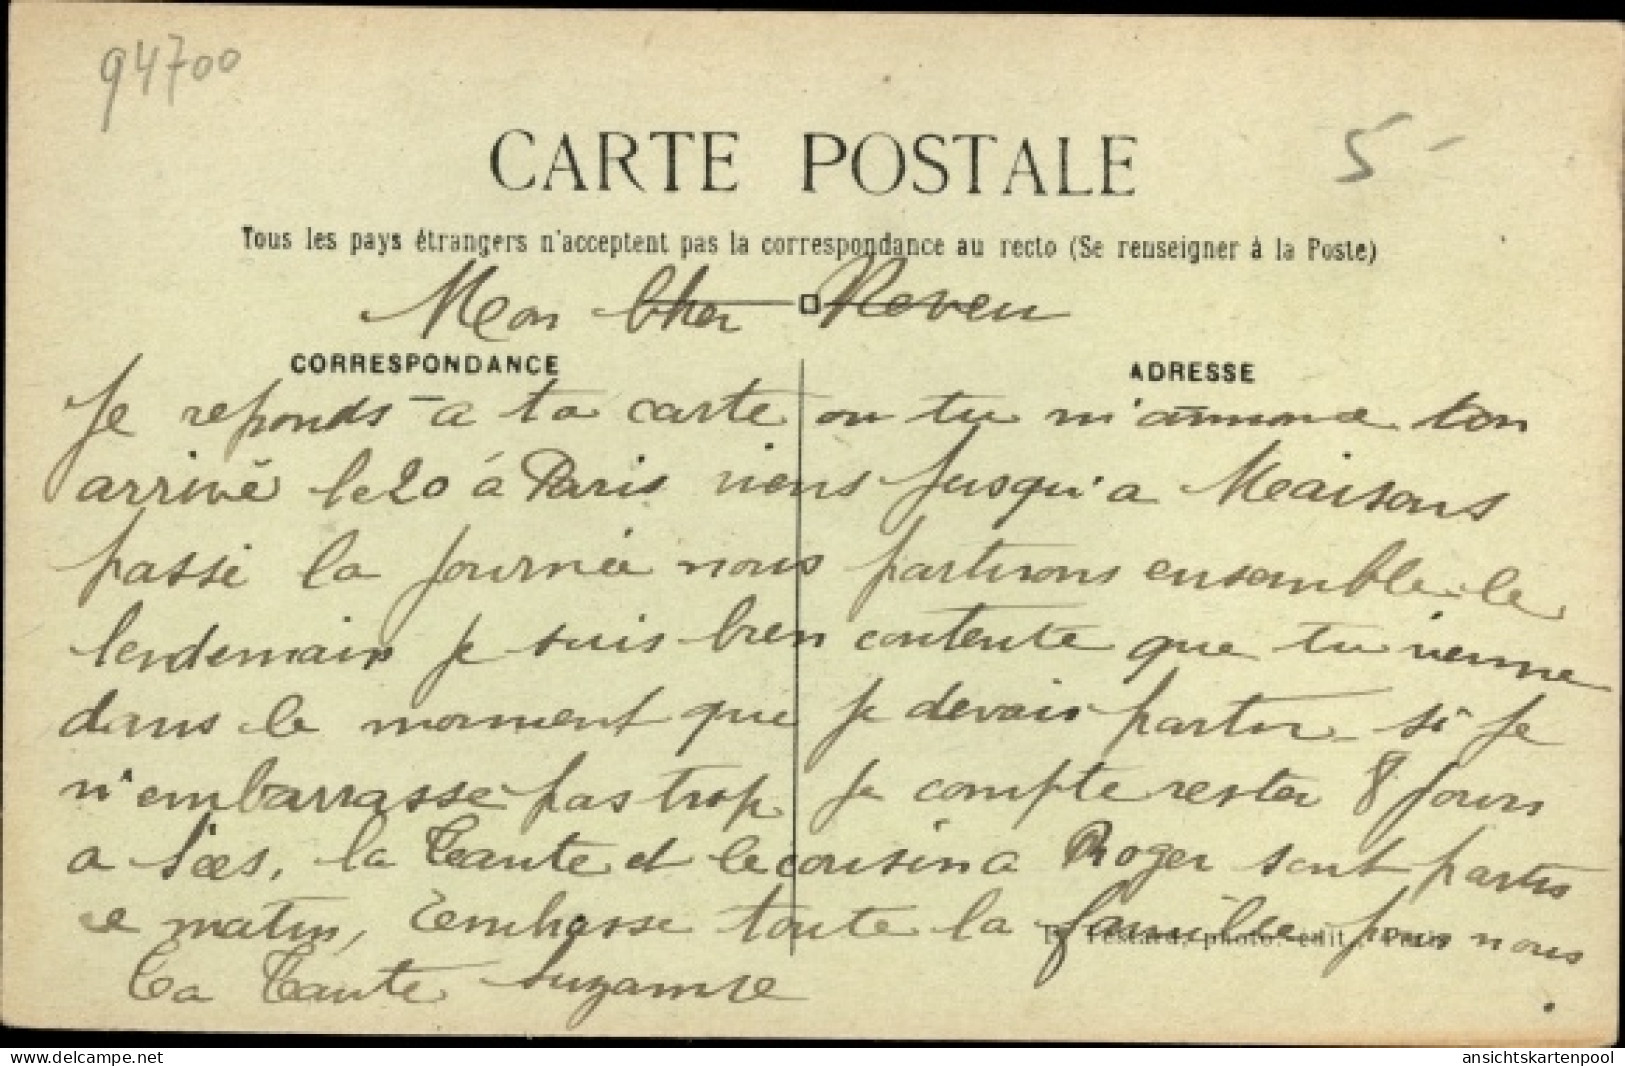 94700
5-
CARTE POSTALE
Tous les pays étrangers n'acceptent pas la correspondance au recto (Se renseigner à la Poste)
Mon Cher Neveu
CORRESPONDANCE
ADRESSE
Je reponds a ta carte ou tu m'annonce ton
arrivé le 20 à Paris viens jusqu'a Maisons
passé la journée nous partirons ensemble le
lendemain je suis bien contente que tu vienne
dans le moment que je devais partir si je
n'embarrasse pas trop je compte rester 8 jours
a la Tante et le cousin a Roger sont partis
ce matin, embrasse toute la famille pour nous
Ta Tante Suzanne
E. Testard, photo. édit., Paris
delcampe.net
ansichtskartenpool